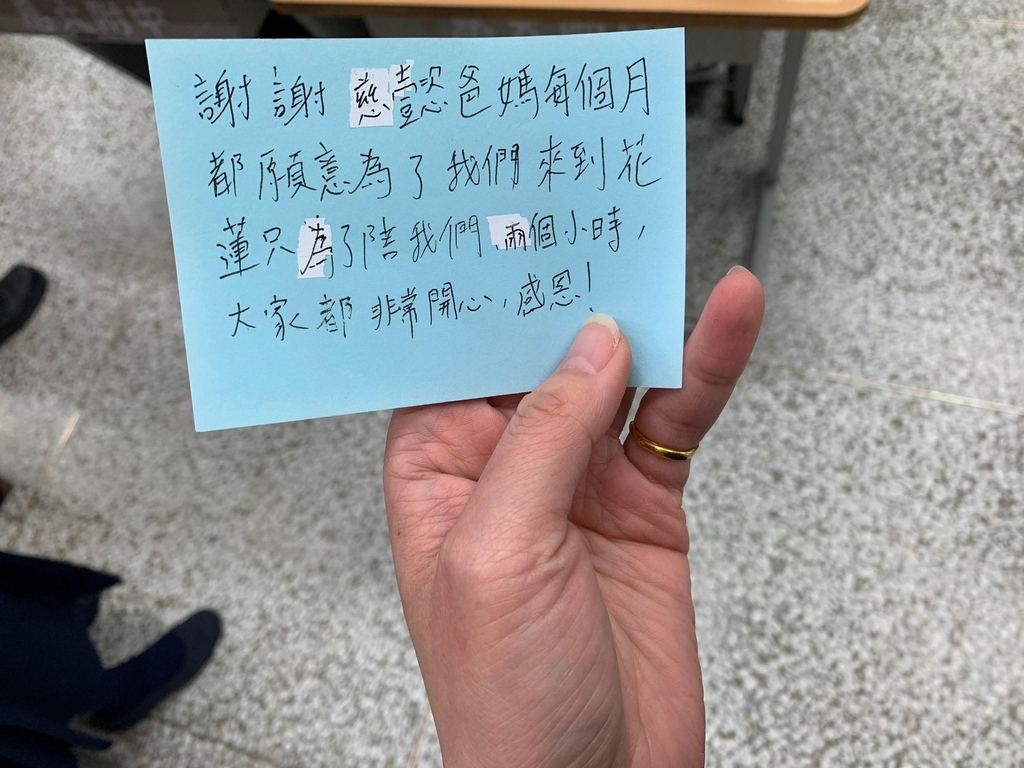 謝謝慈懿爸媽每個月
都願意為了我們來到花
蓮只為了陪我們兩個小時，
大家都非常開心，感恩！